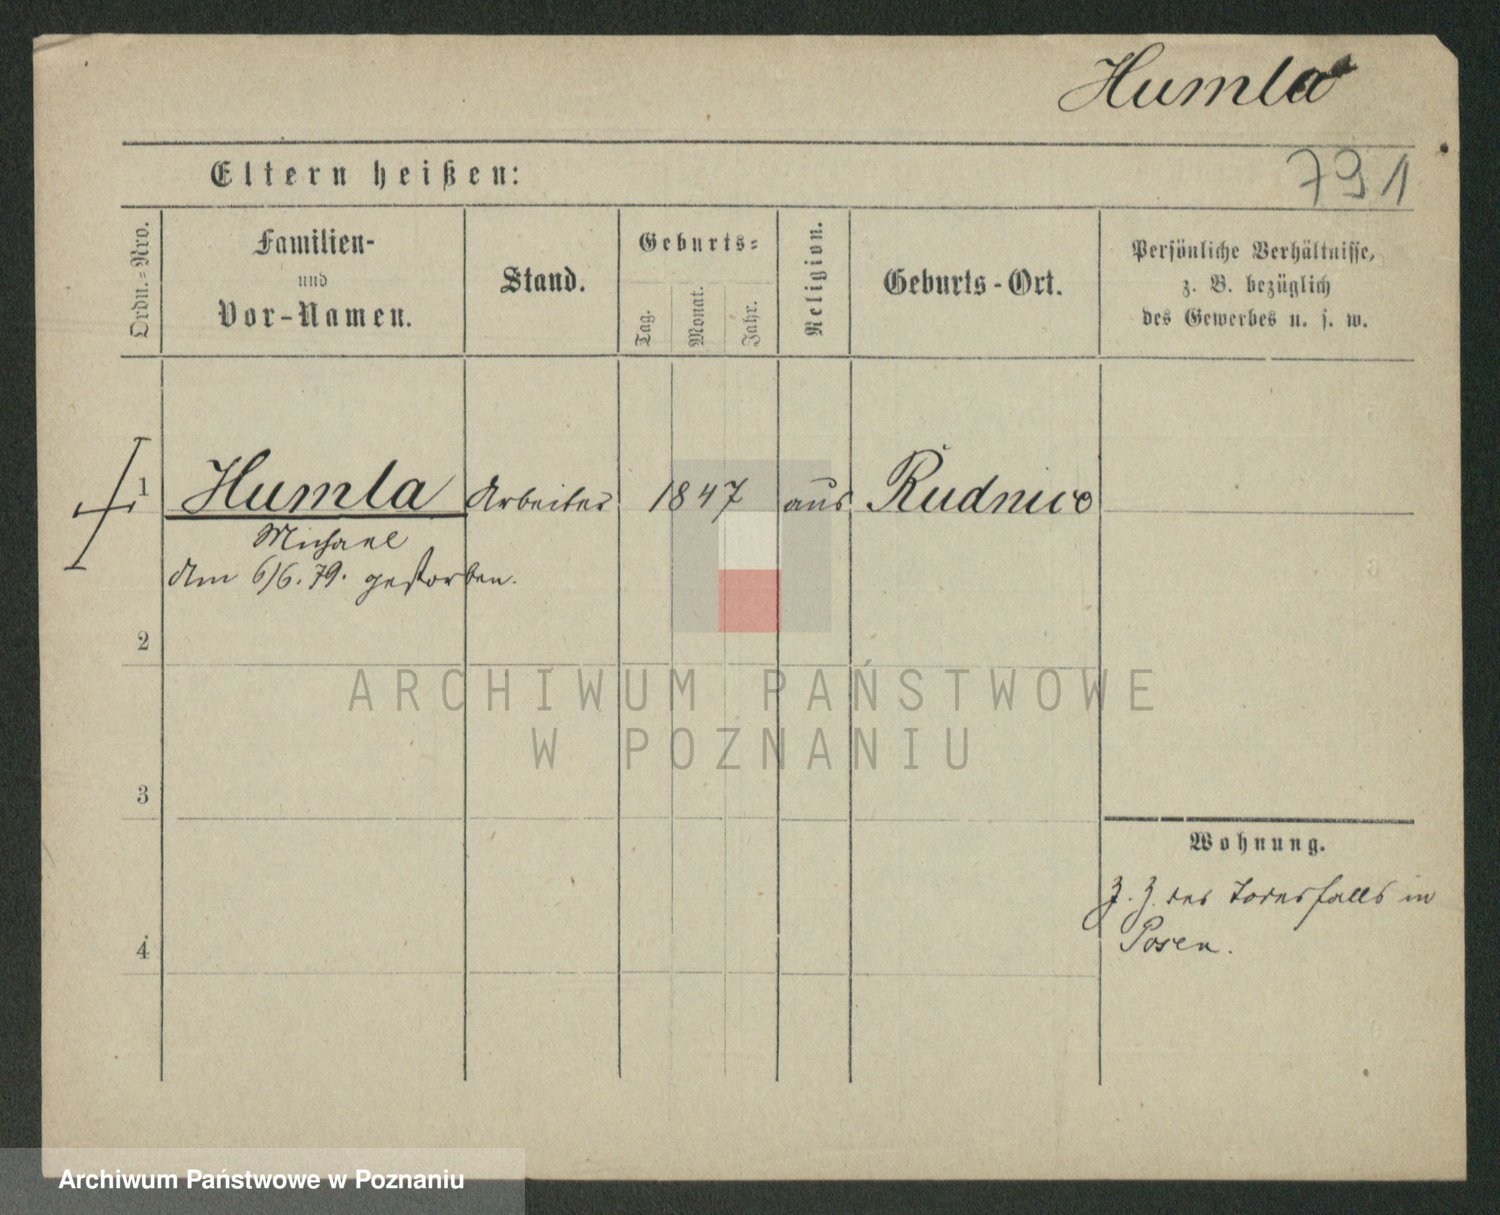 Humla
791
Eltern heißen:
Ordn.-Nro.
Familien-
und
Vor-Namen.
Stand.
Geburts-
Tag.
Monat.
Jahr.
Religion.
Geburts-Ort.
Persönliche Verhältnisse,
z. B. bezüglich
des Gewerbes u. s. w.
1 Humla Arbeiter 1847 aus Rudnico
Michael
Am 6/6. 79. gestorben.
2
ARCHIWUM PAŃSTWOWE
W POZNANIU
3
Wohnung.
z. Z. des Todesfalls in
Posen.
4
Archiwum Państwowe w Poznaniu